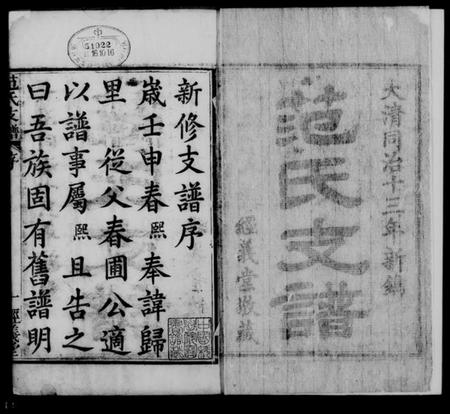 大清同治十三年新鐫
范氏支譜
經義堂收藏
新修支譜序
歲壬申春熙奉諱歸
里 從父春圃公適
以譜事屬熙且告之
曰吾族固有舊譜明
范氏支譜 序
一 經義堂
中
51022